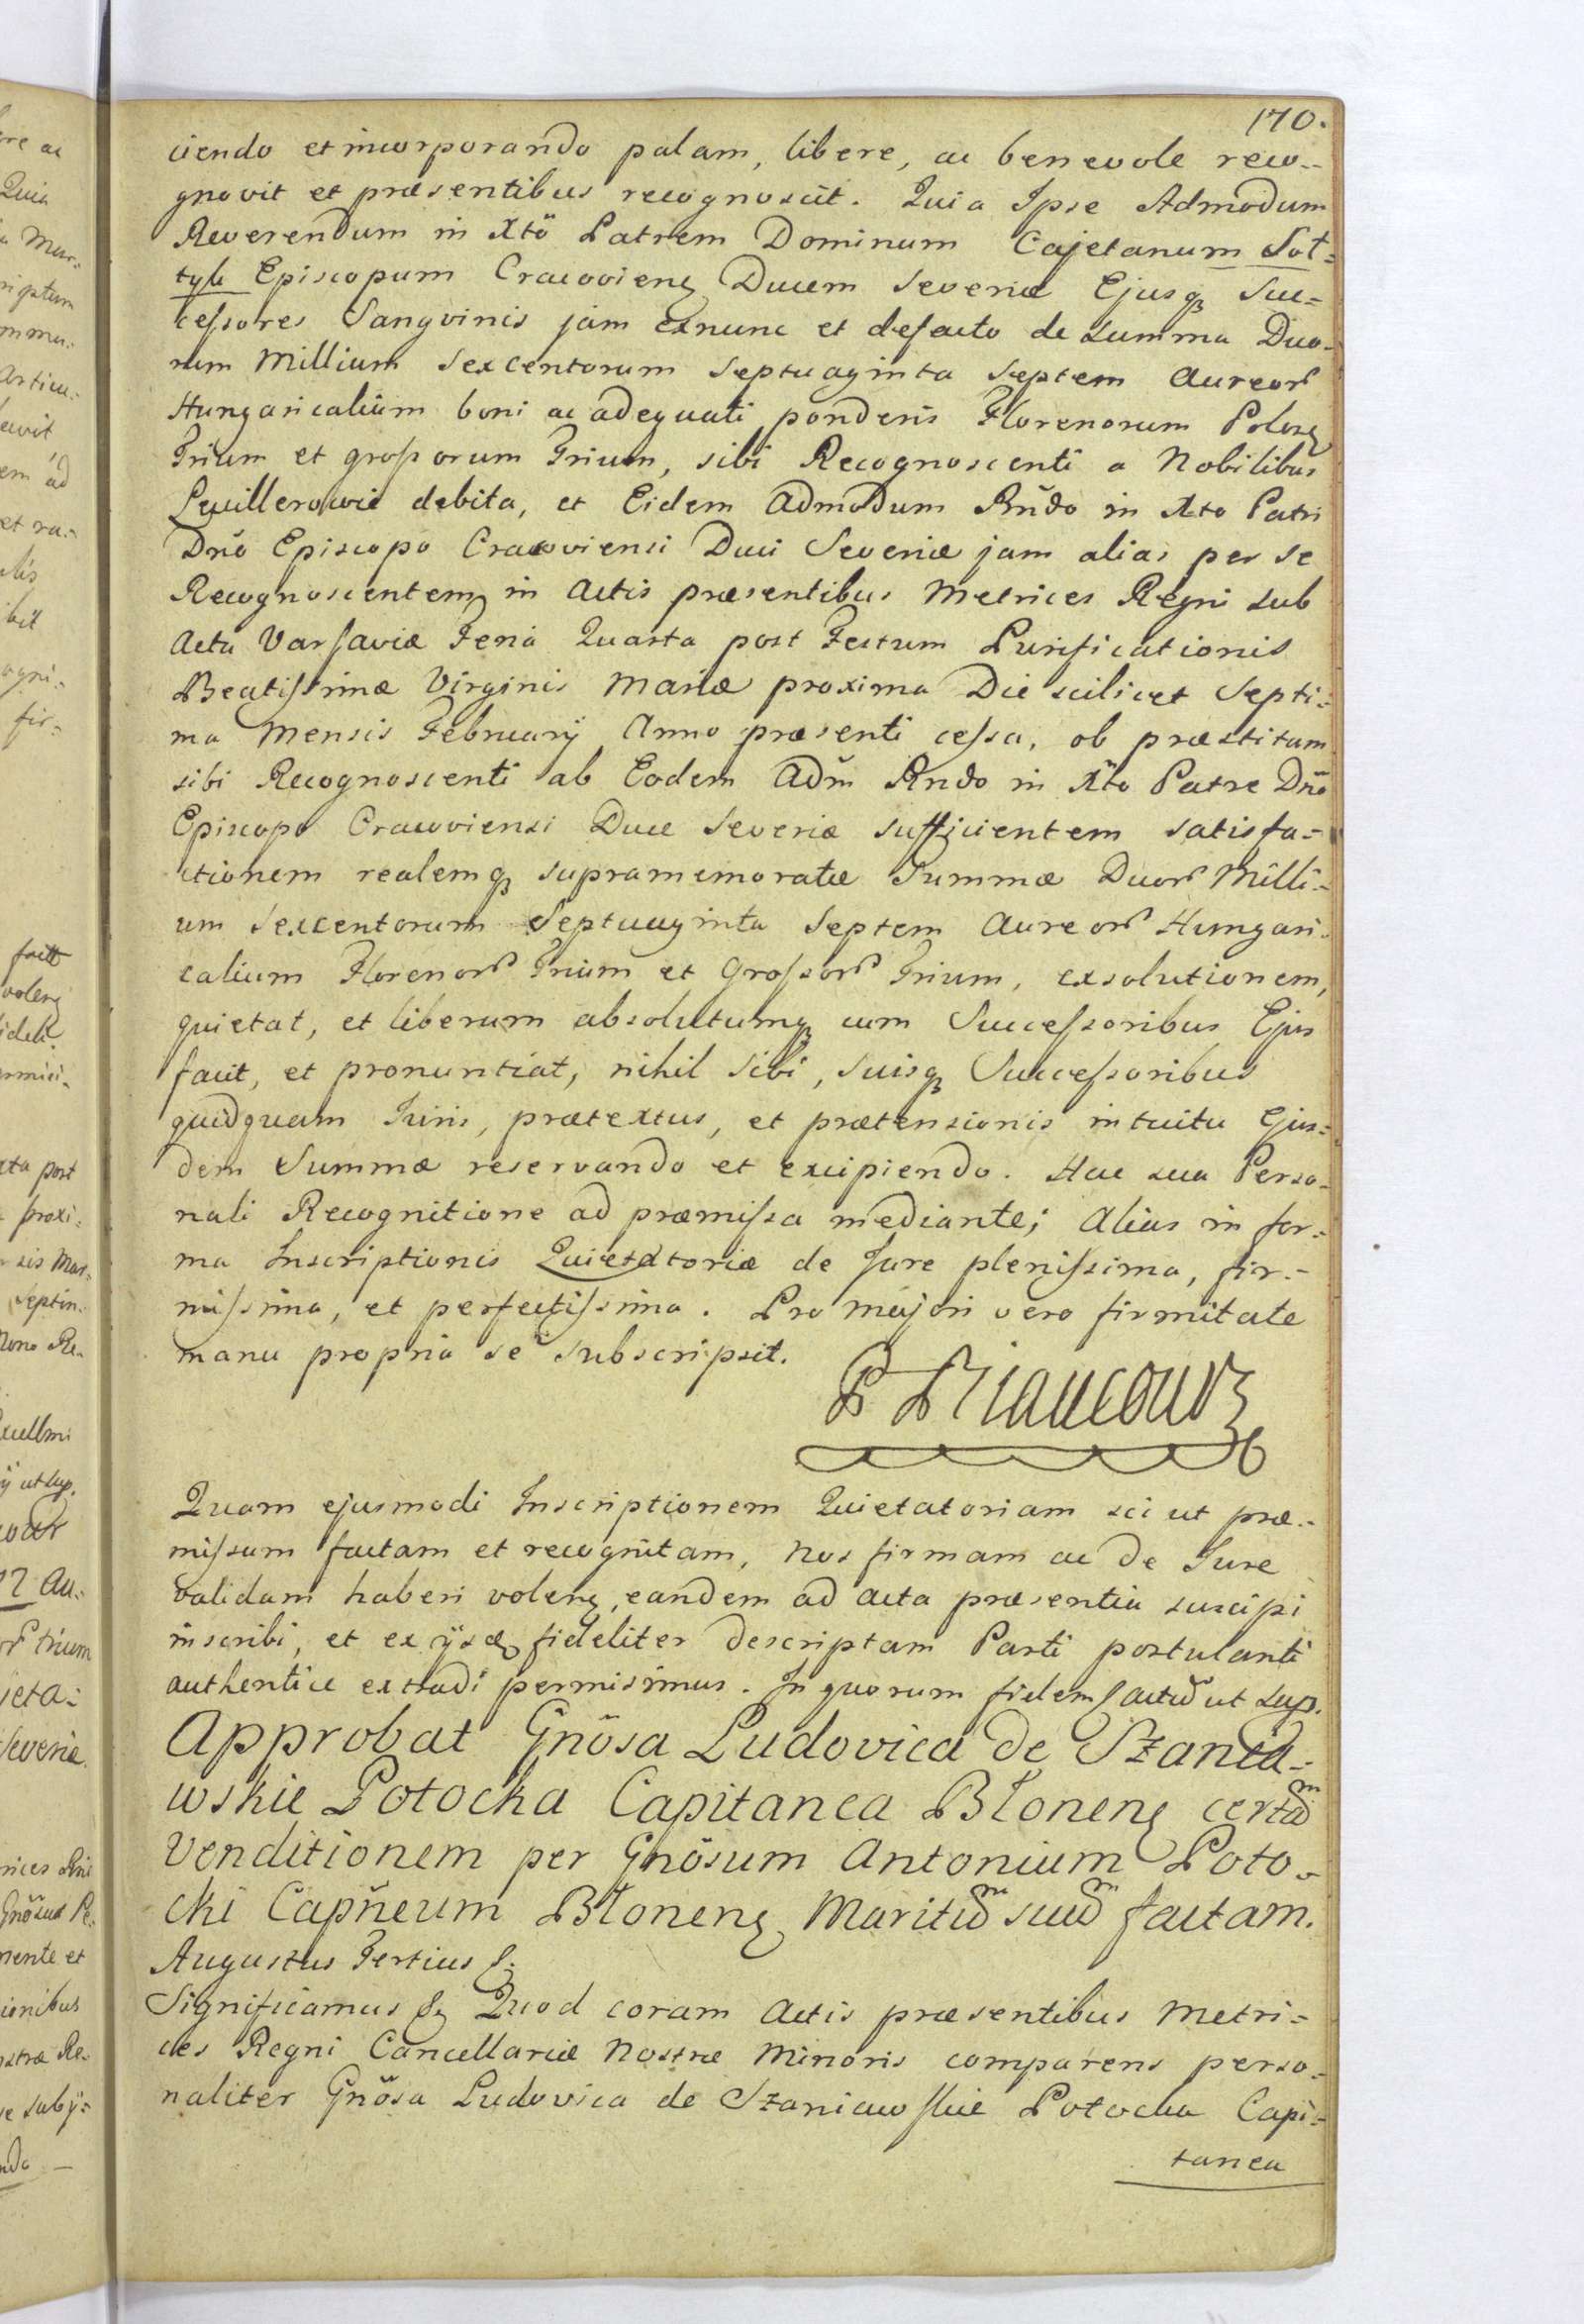 170.
ciendo et incorporando palam, libere, ac benevole reco-
gnovit et præsentibus recognoscit. Quia Ipse Admodum
Reverendum in Xtö Patrem Dominum Cajetanum Soł=
tyk Episcopum Cracovienȩ Ducem Severiæ Ejusqȝ Suc=
ceſsores Sangvinis jam exnunc et defacto de summa Duo-
rum Millium sexcentorum septuaginta septem Aureorꝝ
Hungaricalium boni ac adequati ponderis Florenorum Polonȩ
Trium et groſsorum Trium, sibi Recognoscenti a Nobilibus
debita, et Eidem Admodum Rñdo in Xto Patri
Dño Episcopo Cracoviensi Duci Severiæ jam alias per se
Recognoscentem in Actis præsentibus Metrices Regni sub
Actu Varſaviæ Feria Quarta post Festum Purificationis
Beatiſsimæ Virginis Mariæ proxima Die scilicet Septi=
ma Mensis February Anno præsenti ceſsa, ob præstitam
sibi Recognoscenti ab Eodem Adm̃ Rndo in Xto Patre Dño
Episcopo Cracoviensi Duce Severiæ sufficientem satisfa=
ctionem realemqȝ supramemoratæ Summæ Duorꝝ Milli=
um sexcentorum Septuaginta Septem Aureorꝝ Hungari-
calium Florenorꝝ Trium et Groſsorꝝ Trium, exsolutionem,
quietat, et liberum absolutumqȝ cum Succeſsoribus Ejus
facit, et pronuntiat, nihil sibi, suisqȝ Succeſsoribus
quidquam Juris, prætextus, et prætensionis intuitu Ejus=
dem Summæ reservando et excipiendo. Hac sua Perso-
nali Recognitione ad præmiſsa mediante; Alias in for-
ma Inscriptionis Quietatoriæ de Jure pleniſsima, fir-
miſsima, et perfectiſsima. Pro majori vero firmitate
manu propria se subscripsit.
P Riaucourz
Quam ejusmodi Inscriptionem Quietatoriam sic ut præ-
miſsum factam et recognitam, Nos firmam ac de Jure
validam haberi volenȩ, eandem ad acta præsentia suscipi
inscribi, et ex ijsdȩ fideliter descriptam Parti postulanti
authentice extradi permisimus. In quorum fidem Actũ ut sup.
Approbat Gnösa Ludovica de Szania-
wskie Potocka Capitanea Błonenȩ certam
Venditionem per Gnösum Antonium Poto-
cki Capñeum Błonenȩ Maritum suum factam.
Augustus Tertius &
Significamus & Quod coram Actis præsentibus Metri=
ces Regni Cancellariæ Nostræ Minoris comparens perso=
naliter Gnösa Ludovica de Szaniawskie Potocka Capi=
tanea